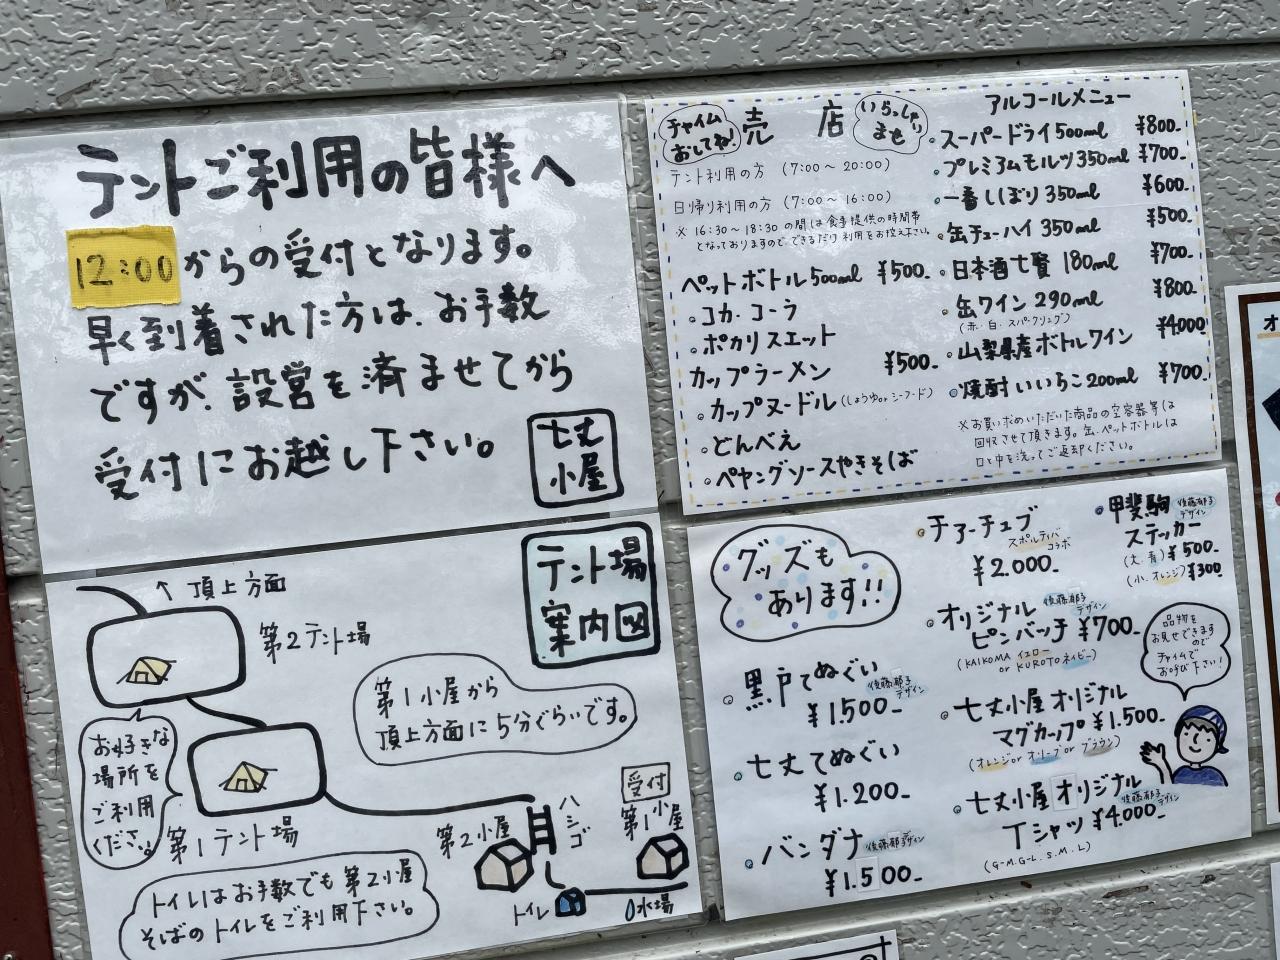 テントご利用の皆様へ
12:00からの受付となります。
早く到着された方は、お手数
ですが、設営を済ませてから
受付にお越し下さい。
七丈
小屋
テント場
案内図
↑頂上方面
第2テント場
第1小屋から
頂上方面に5分ぐらいです。
お好きな
場所を
ご利用
ください。
第1テント場
ハシゴ
受付
第1小屋
第2小屋
トイレ
水場
トイレはお手数でも第2小屋
そばのトイレをご利用下さい。
チャイム
おしてね!
売店
いらっしゃい
ませ
テント利用の方 (7:00～20:00)
日帰り利用の方 (7:00～16:00)
※16:30～18:30の間は食事提供の時間帯
となっておりますのでできるだけ利用をお控え下さい。
ペットボトル500ml ¥500-
・コカ・コーラ
・ポカリスエット
カップラーメン ¥500-
・カップヌードル(しょうゆorシーフード)
・どんべえ
・ペヤングソースやきそば
アルコールメニュー
・スーパードライ500ml ¥800-
・プレミアムモルツ350ml ¥700-
・一番しぼり350ml ¥600-
・缶チューハイ350ml ¥500-
・日本酒七賢180ml ¥700-
・缶ワイン290ml ¥800-
(赤・白・スパークリング)
・山梨県産ボトルワイン ¥4000-
・焼酎いいちこ200ml ¥700-
※お買い求めいただいた商品の空容器等は
回収させて頂きます。缶、ペットボトルは
口と中を洗ってご返却ください。
グッズも
あります!!
・黒戸てぬぐい
後藤郁子デザイン
¥1.500-
・七丈てぬぐい
¥1.200-
・バンダナ 後藤郁子デザイン
¥1.500-
・チアーチュブ
スポルティバ
コラボ
¥2.000-
・オリジナル 後藤郁子デザイン
ピンバッチ ¥700-
(KAIKOMA イエロー
or KUROTO ネイビー)
・七丈小屋オリジナル
マグカップ ¥1.500-
(オレンジorオリーブorブラウン)
・七丈小屋オリジナル
後藤郁子デザイン
Tシャツ ¥4.000-
(G-M.G-L.S.M.L)
・甲斐駒 後藤郁子デザイン
ステッカー
(大.青)¥500-
(小.オレンジ)¥300
品物を
お見せできます
ので
チャイムで
お呼び下さい!
オ